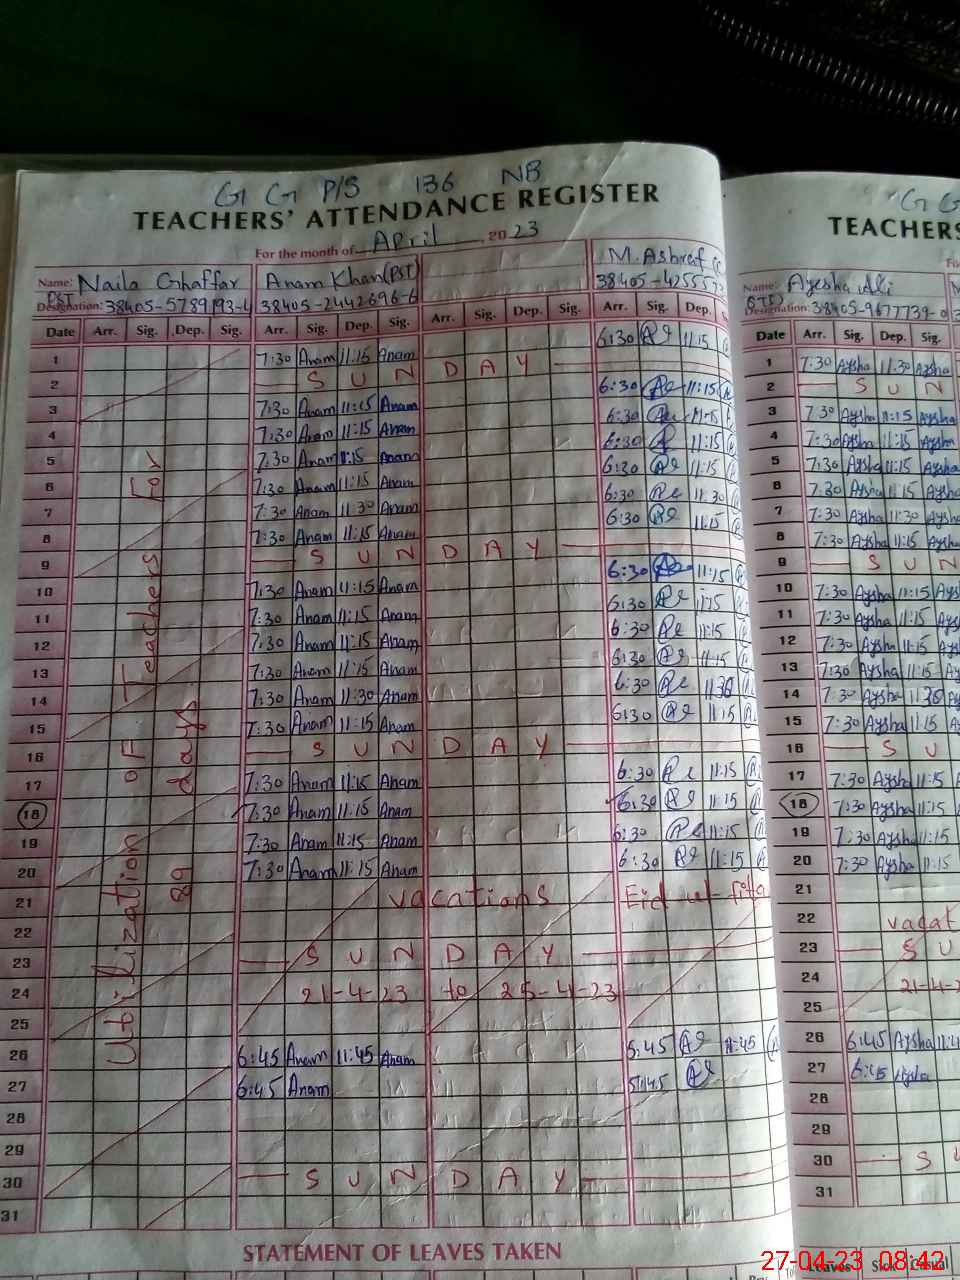 G G P/S 136 NB
TEACHERS' ATTENDANCE REGISTER
For the month of April, 2023
Name: Naila Ghaffar Anam Khan (PST) M. Ashraf
PST Designation: 38405-5789193-4 38405-2442696-6 38405-425557
Date Arr. Sig. Dep. Sig. Arr. Sig. Dep. Sig. Arr. Sig. Dep. Sig. Arr. Sig. Dep.
1 7:30 Anam 11:15 Anam 6:30 11:15
2 S U N D A Y
3 7:30 Anam 11:15 Anam 6:30 11:15
4 7:30 Anam 11:15 Anam 6:30 11:15
5 7:30 Anam 11:15 Anam 6:30 11:15
6 7:30 Anam 11:15 Anam 6:30 11:15
7 7:30 Anam 11:30 Anam 6:30 11:30
8 7:30 Anam 11:15 Anam 6:30 11:15
9 S U N D A Y
10 7:30 Anam 11:15 Anam 6:30 11:15
11 7:30 Anam 11:15 Anam 6:30 11:15
12 7:30 Anam 11:15 Anam 6:30 11:15
13 7:30 Anam 11:15 Anam 6:30 11:15
14 7:30 Anam 11:30 Anam 6:30 11:30
15 7:30 Anam 11:15 Anam 6:30 11:15
16 S U N D A Y
17 7:30 Anam 11:15 Anam 6:30 11:15
18 7:30 Anam 11:15 Anam 6:30 11:15
19 7:30 Anam 11:15 Anam 6:30 11:15
20 7:30 Anam 11:15 Anam 6:30 11:15
21 vacations Eid ul
22
23 S U N D A Y
24 21-4-23 to 25-4-23
25
26 6:45 Anam 11:45 Anam 6:45 11:45
27 6:45 Anam
28
29
30 S U N D A Y
31
Utilization of Teachers For
89 days
STATEMENT OF LEAVES TAKEN
G G
TEACHERS
Name: Ayesha Ali
Designation: 38405-9677739-0
Date Arr. Sig. Dep. Sig.
1 7:30 Aysha 11:30 Aysha
2 S U N
3 7:30 Aysha 11:15 Aysha
4 7:30 Aysha 11:15 Aysha
5 7:30 Aysha 11:15 Aysha
6 7:30 Aysha 11:15 Aysha
7 7:30 Aysha 11:30 Aysha
8 7:30 Aysha 11:15 Aysha
9 S U N
10 7:30 Aysha 11:15 Aysha
11 7:30 Aysha 11:15 Aysha
12 7:30 Aysha 11:15 Aysha
13 7:30 Aysha 11:15 Aysha
14 7:30 Aysha 11:30 Aysha
15 7:30 Aysha 11:15 Aysha
16 S U
17 7:30 Aysha 11:15
18 7:30 Aysha 11:15
19 7:30 Aysha 11:15
20 7:30 Aysha 11:15
21
22 vacat
23 S U
24 21-4-2
25
26 6:45 Aysha 11:4
27 6:45 Aysha
28
29
30 S U
31
Leaves Sick Casual
27-04-23 08:42